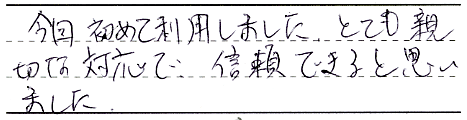 今回初めて利用しました。とても親
切な対応で、信頼できると思い
ました。